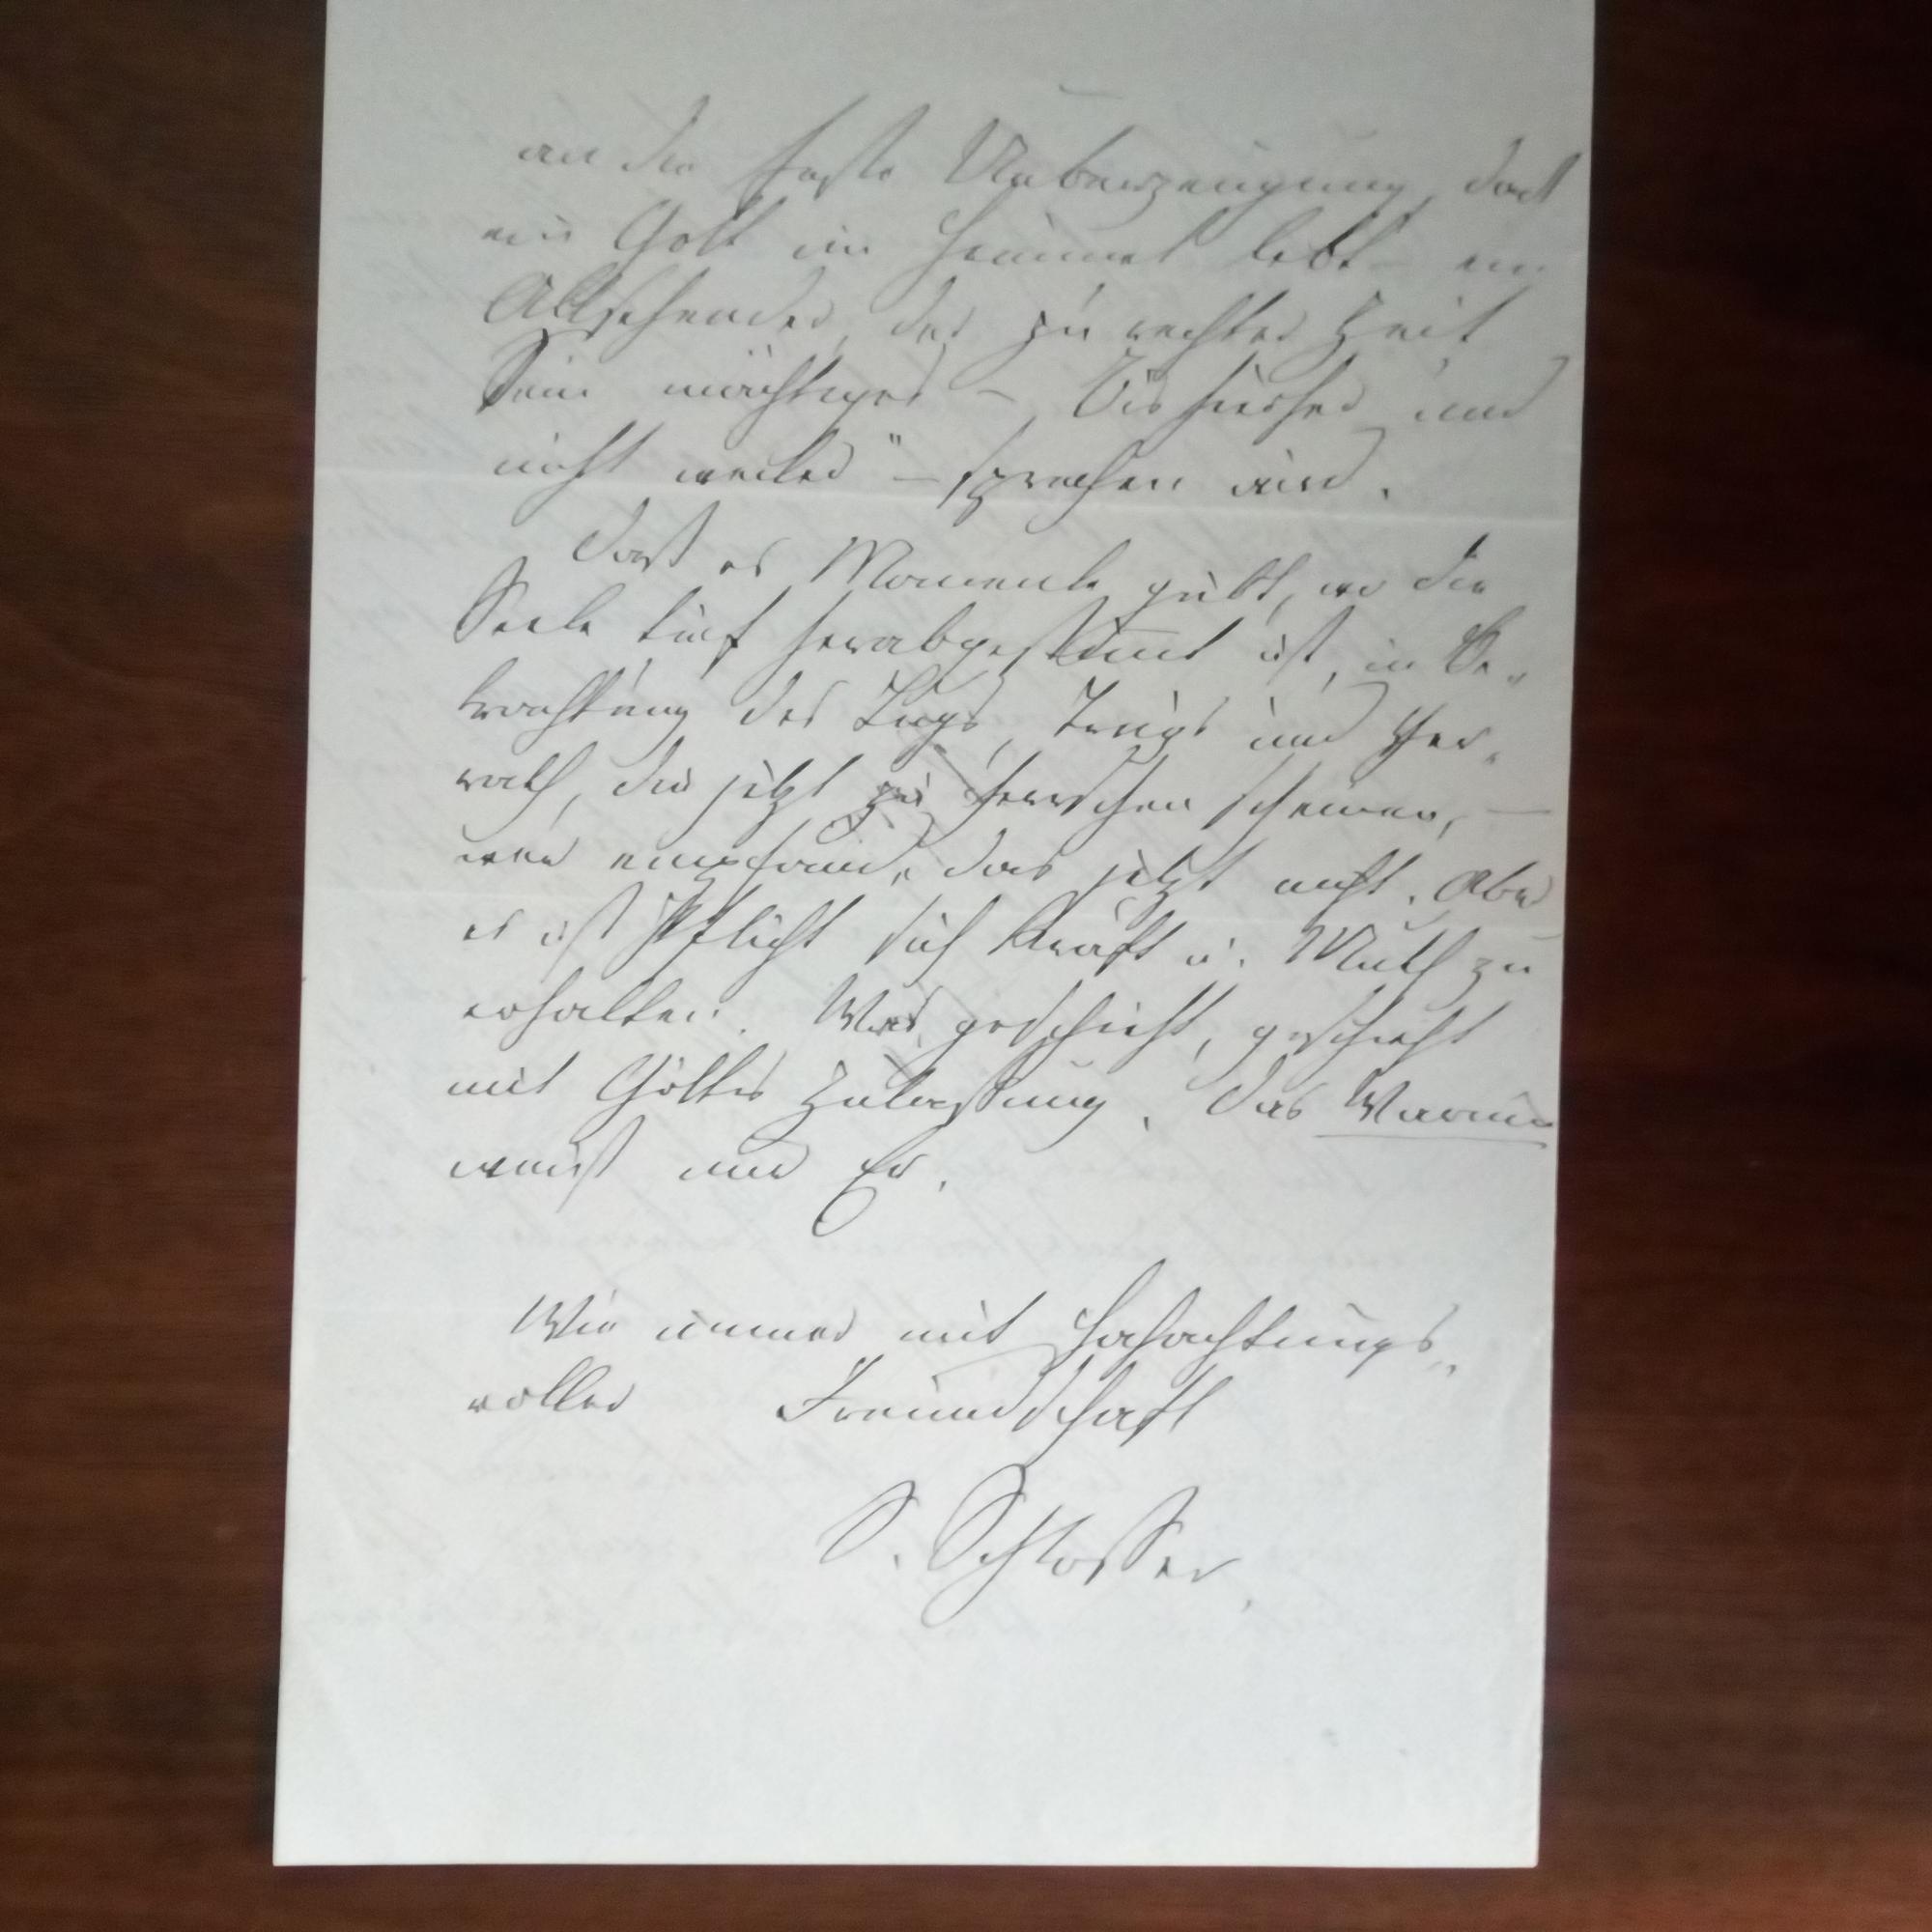 an die feste Ueberzeugung, daß
ein Gott im Himmel lebt – ein
Allsehender, der zu rechter Zeit
Sein mächtiges – „Bis hierher und
nicht weiter" – sprechen wird.
Daß es Momente giebt, wo die
Seele tief herabgestimmt ist, in Be„
trachtung des Lugs, Trugs und Ver„
rath, die jetzt zu herrschen scheinen, –
wer empfände das jetzt nicht. Aber
es ist Pflicht sich Kraft u. Muth zu
erhalten. Was geschieht, geschieht
mit Gottes Zulassung. Das Warum
weiß nur Er.
Wie immer mit hochachtungs„
voller Freundschaft
S. Schlosser